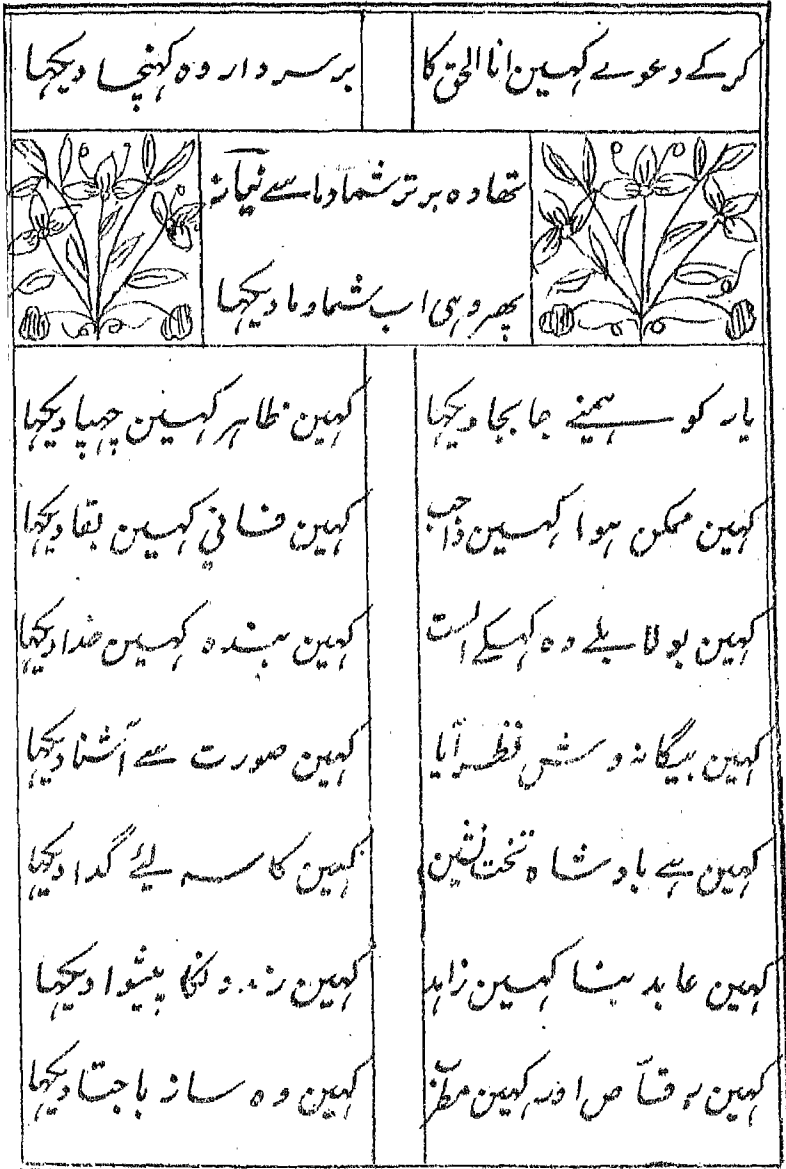 کرکے دعوے کہین انا الحق کا بر سر دار وہ کہنچا دیکہا
تہا وہ برتر شما و ما سے نیاز
پہر وہی اب شما و ما دیکہا
یار کو ہمنے جا بجا دیکہا کہین ظاہر کہین چہپا دیکہا
کہین ممکن ہوا کہین واجب کہین فانی کہین بقا دیکہا
کہین بولا بلے وہ کہکے الست کہین بندہ کہین خدا دیکہا
کہین بیگانہ وش نظر آیا کہین صورت سے آشنا دیکہا
کہین ہے بادشاہ تخت نشین کہین کاسہ لئے گدا دیکہا
کہین عابد بنا کہین زاہد کہین رندونکا پیشوا دیکہا
کہین رقاص اور کہین مطرب کہین وہ ساز باجتا دیکہا